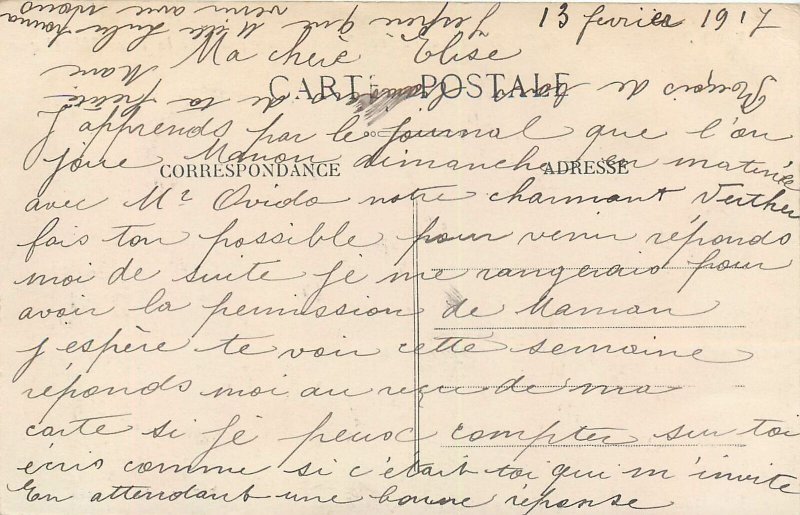 13 février 1917
Ma chère Elise
CARTE POSTALE
j'apprends par le journal que l'on
joue Manon dimanche en matinée
CORRESPONDANCE
ADRESSE
avec Mr Ovido notre charmant Verther
fais ton possible pour venir réponds
moi de suite je me rangerais pour
avoir la permission de Maman
j'espère te voir cette semaine
réponds moi au reçu de ma
carte si je peux compter sur toi
écris comme si c'était toi qui m'invite
En attendant une bonne réponse
Reçois de bons baisers de ta petite
Marie
J'espère que Melle
viendra avec nous